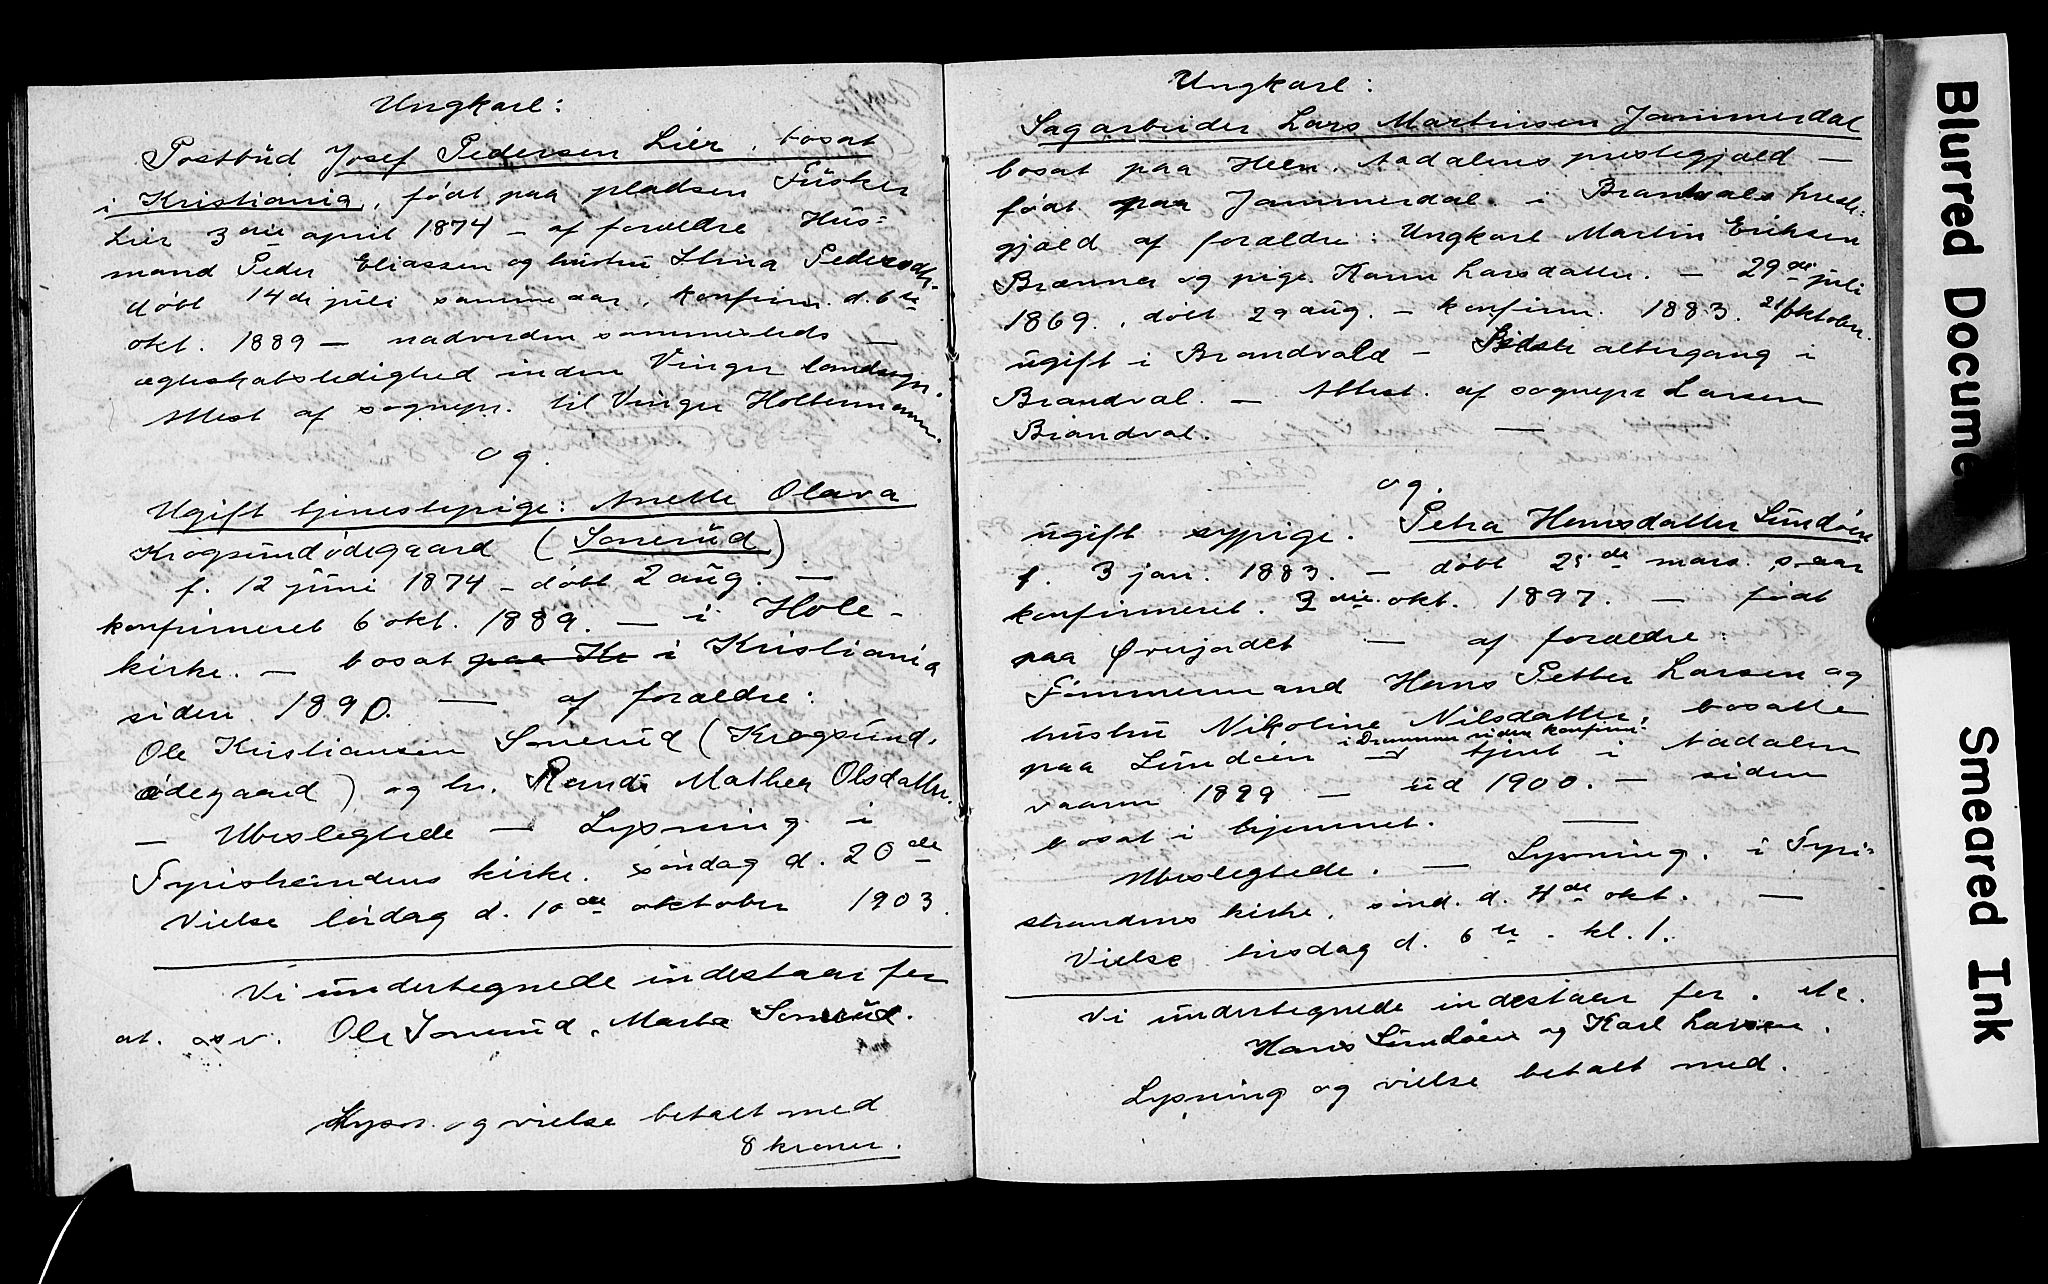 Ungkarl:
Postbud Josef Pedersen Lier, bosat
i Kristiania, født paa pladsen Fusker
Lier 3die april 1874 – af forældre Hus=
mand Peder Eliassen og hustru Stina Pedersdtr.
døbt 14de juli samme aar, konfirm. d. 6te
okt. 1889 – nadverden sammesteds –
ægteskabsledighed inden Vinger landsogn.
Attest af sognepr. til Vinger Holtermann.
og.
Ugift tjenestepige: Anette Olava
Krogsundødegaard (Sonerud)
f. 12 juni 1874 – døbt 2 aug. –
konfirmeret 6 okt. 1889. – i Hole –
kirke. – bosat paa He i Kristiania
siden 1890. – af forældre:
Ole Kristiansen Sonerud (Krogsund.
ødegaard) og h. Randi Mathea Olsdatter.
– Ubeslegtede – Lysning i
Tyristrandens kirke. søndag d. 20de
Vielse lørdag d. 10de oktober 1903.
Vi undertegnede indestaar for
at. osv. Ole Sonerud, Marta Sonerud.
Lysn. og vielse betalt med
8 kroner.
Ungkarl:
Sagarbeider Lars Martinsen Jammerdal
bosat paa Hen. Aadalens prestegjæld –
født paa Jammerdal. i Brandvals preste=
gjæld af forældre: Ungkarl Martin Eriksen
Brænna og pige Karen Larsdatter. – 29de juli
1869., døbt 29 aug. – konfirm. 1883. 21 oktober.
ugift i Brandvold – Sidste altergang i
Brandval. – Attest. af sognepr Larsen
Brandval. –
og.
ugift sypige. Petra Hansdatter Lundøen
f. 3 jan. 1883. – døbt 25de mars s. aar
konfirmeret. 3die okt. 1897. – født
paa Øverjordet – af forældre:
Tømmermand Hans Petter Larsen og
hustru Nikoline Nilsdatter, bosatte
i Drammen siden konfirm.
paa Lundøen – tjent i Aadalen
vaaren 1899 – ud 1900. – siden
bosat i hjemmet. –
Ubeslegtede. – Lysning. i Tyri=
strandens kirke. sønd. d. 4de okt. –
Vielse tirsdag d. 6te. kl. 1.
Vi undertegnede indestaar for. etc.
Hans Lundøen og Karl Larsen.
Lysning og vielse betalt med.
Blurred Docume
Smeared Ink